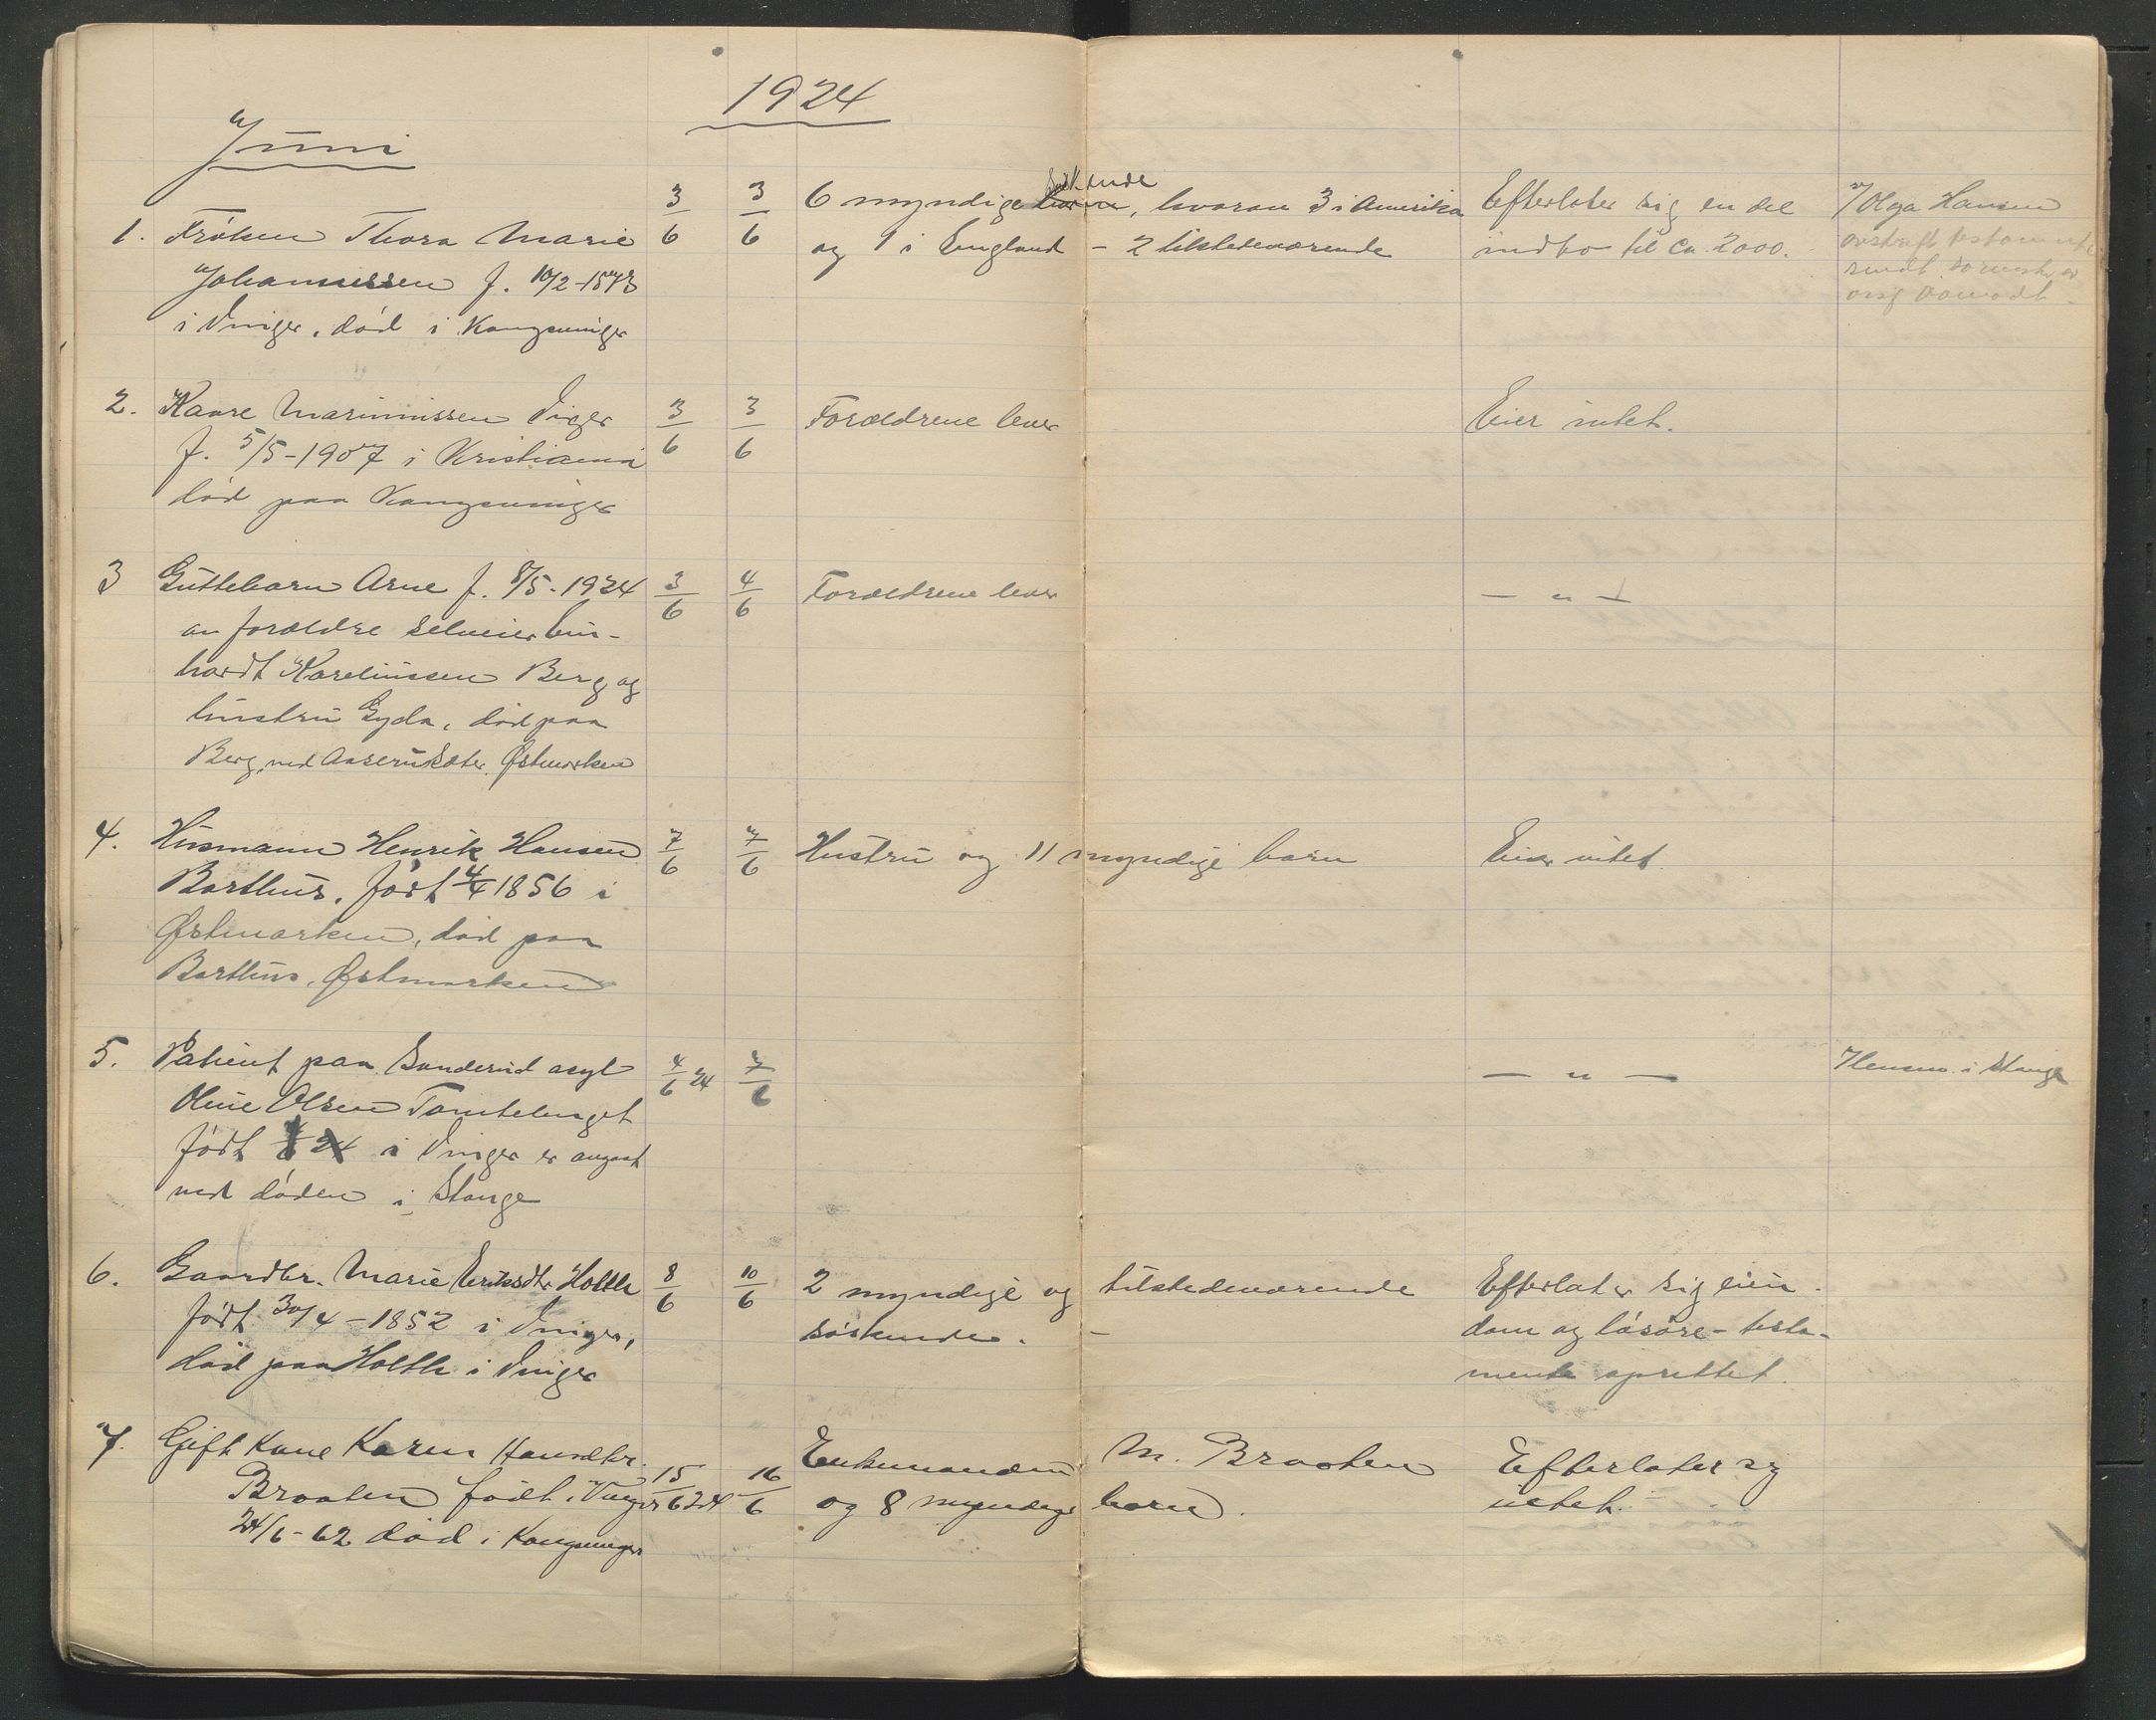 1924
Juni
1. Frøken Thora Marie 3/6 3/6 6 myndige søskende, hvorav 3 i Amerika Efterlater sig en del Olga Hansen
Johannessen f. 10/2-1873 og 1 i England - 2 tilstedeværende indbo til ca. 2000. avskrift testamente
i Vinger, død i Kongsvinger sendt
2. Kaare Marinussen Vinger 3/6 3/6 Forældrene lever Eier intet.
f. 5/5-1907 i Kristiania
død paa Kongsvinger
3 Guttebarn Arne f. 8/5-1924 3/6 4/6 Forældrene lever — " —
av forældre selveier
hardt Kareliussen Berg og
hustru Gyda, død paa
Berg, ved Aaserudsæter, Østmarken
4. Husmann Henrik Hansen 7/6 7/6 Hustru og 11 myndige barn Eier intet.
Barthus, født 4/4 1856 i
Østmarken, død paa
Barthus, Østmarken
5. Patient paa Sanderud asyl 4/6 24 7/6 — " — i Stange
Oline Olsen Tomteberget
født i Vinger er
ved døden i Stange
6. Gaardbr. Marie Eriksdtr Holth 8/6 10/6 2 myndige og tilstedeværende Efterlater sig eien-
født 30/4-1852 i Vinger, søskende. - dom og løsøre - testa-
død paa Holth i Vinger mente oprettet.
7. Gift Kone Karen Hansdtr. 15/6 24 16/6 Enkemanden M. Braaten Efterlater sig
Braaten født i Vinger og 8 myndige barn. intet.
24/6-62 død i Kongsvinger